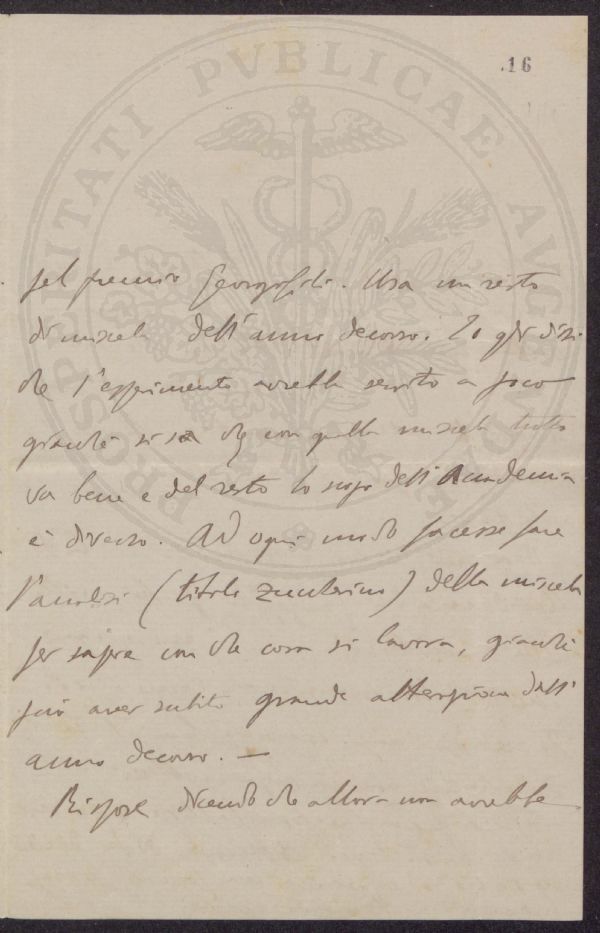 .16
PROSPERITATI PVBLICAE AVGENDAE
pel premio Georgofili. Usa un resto
di miscela dell'anno decorso. Io gli dissi
che l'esperimento avrebbe servito a poco
giacchè si sa che con quella miscela tutto
va bene e del resto lo scopo dell'Accademia
è diverso. Ad ogni modo facesse fare
l'analisi (titolo zuccherino) della miscela
per sapere con che cosa si lavora, giacchè
può aver subito grande alterazione dall'
anno decorso. —
Rispose dicendo che allora non avrebbe